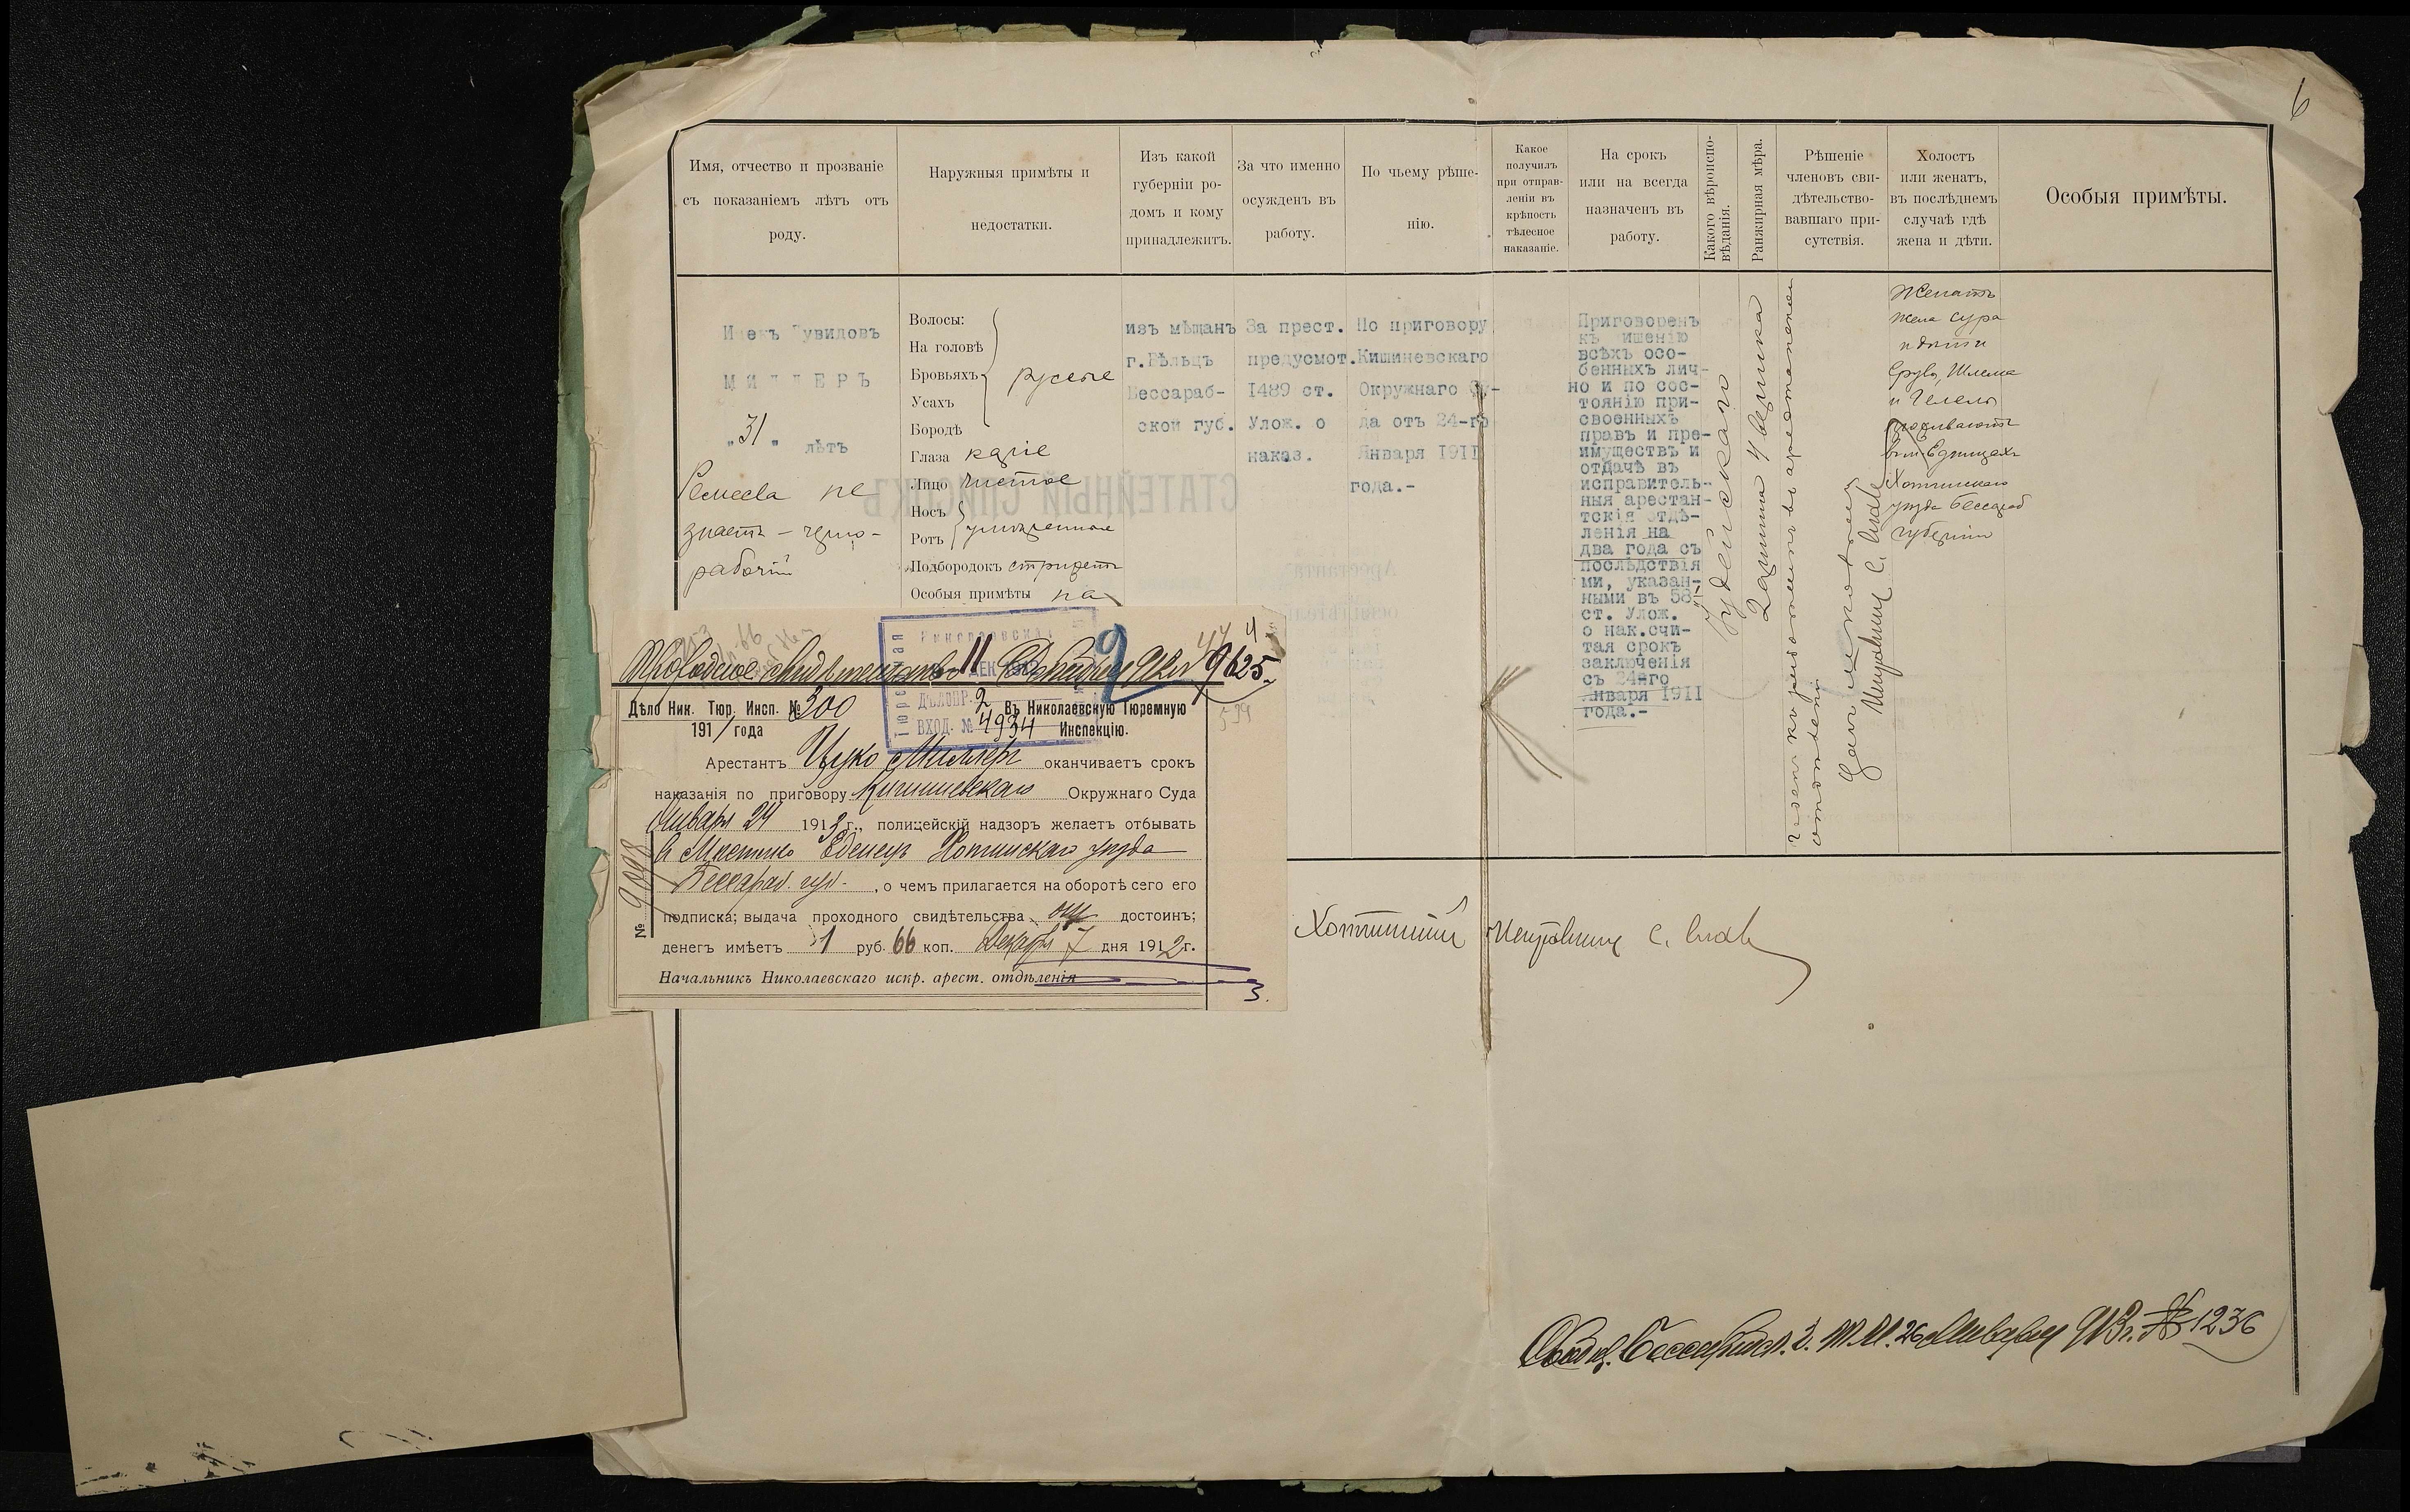 6
Имя, отчество и прозваніе
съ показаніемъ лѣтъ отъ
роду.
Наружныя примѣты и
недостатки.
Изъ какой
губерніи ро-
домъ и кому
принадлежитъ.
За что именно
осужденъ въ
работу.
По чьему рѣше-
нію.
Какое
получилъ
при отправ-
леніи въ
крѣпость
тѣлесное
наказаніе.
На срокъ
или на всегда
назначенъ въ
работу.
Какого вѣроиспо-
вѣданія.
Ранжирная мѣра.
Рѣшеніе
членовъ сви-
дѣтельство-
вавшаго при-
сутствія.
Холостъ
или женатъ,
въ послѣднемъ
случаѣ гдѣ
жена и дѣти.
Особыя примѣты.
МИЛЛЕРЪ
„31„ лѣтъ
Ремесла не
знаетъ – черно-
рабочій
Волосы:
На головѣ
Бровьяхъ русые
Усахъ
Бородѣ
Глаза каріе
Лицо чистое
Носъ
Ротъ умѣренные
Подбородокъ стрижетъ
Особыя примѣты на
изъ мѣщанъ
г.Бѣльцъ
Бессараб-
ской губ.
За прест.
предусмот.
1489 ст.
Улож. о
наказ.
По приговору
Кишиневскаго
Окружнаго Су-
да отъ 24-го
Января 1911
года.-
Приговоренъ
къ лишенію
всѣхъ осо-
бенныхъ лич-
но и по сос-
тоянію при-
своенныхъ
правъ и пре-
имуществъ и
отдачѣ въ
исправитель-
ныя арестан-
тскія отдѣ-
ленія на
два года съ
послѣдствія
ми, указан-
ными въ 58-
ст. Улож.
о нак.счи-
тая срокъ
заключенія
съ 24-го
Января 1911
года.-
Іудейскаго
2 аршина 4 вершка
Женатъ
жена Сура
и дѣти
Шлема
проживаютъ
въ м. Единцахъ
Хотинскаго
уѣзда Бессараб
губерніи
Проходное свидѣтельство 11 Декабря 912 г. № 9625.
Дѣло Ник. Тюр. Инсп. № 300
1911 года
ДЕК 1912
ДѢЛОПР. 2
ВХОД. № 4934
2
Въ Николаевскую Тюремную
Инспекцію.
Арестантъ Ицко Миллеръ оканчиваетъ срокъ
наказанія по приговору Кишиневскаго Окружнаго Суда
Января 24 1913 г., полицейскій надзоръ желаетъ отбывать
в Мѣстечко Единецъ Хотинскаго уѣзда
Бессараб. губ. , о чемъ прилагается на оборотѣ сего его
подписка; выдача проходного свидѣтельства достоинъ;
денегъ имѣетъ 1 руб. 66 коп. Декабря 7 дня 1912г.
Начальникъ Николаевскаго испр. арест. отдѣленія
№ 9098
3.
Хотинскій Исправникъ
26 Января 913 г. № 1236